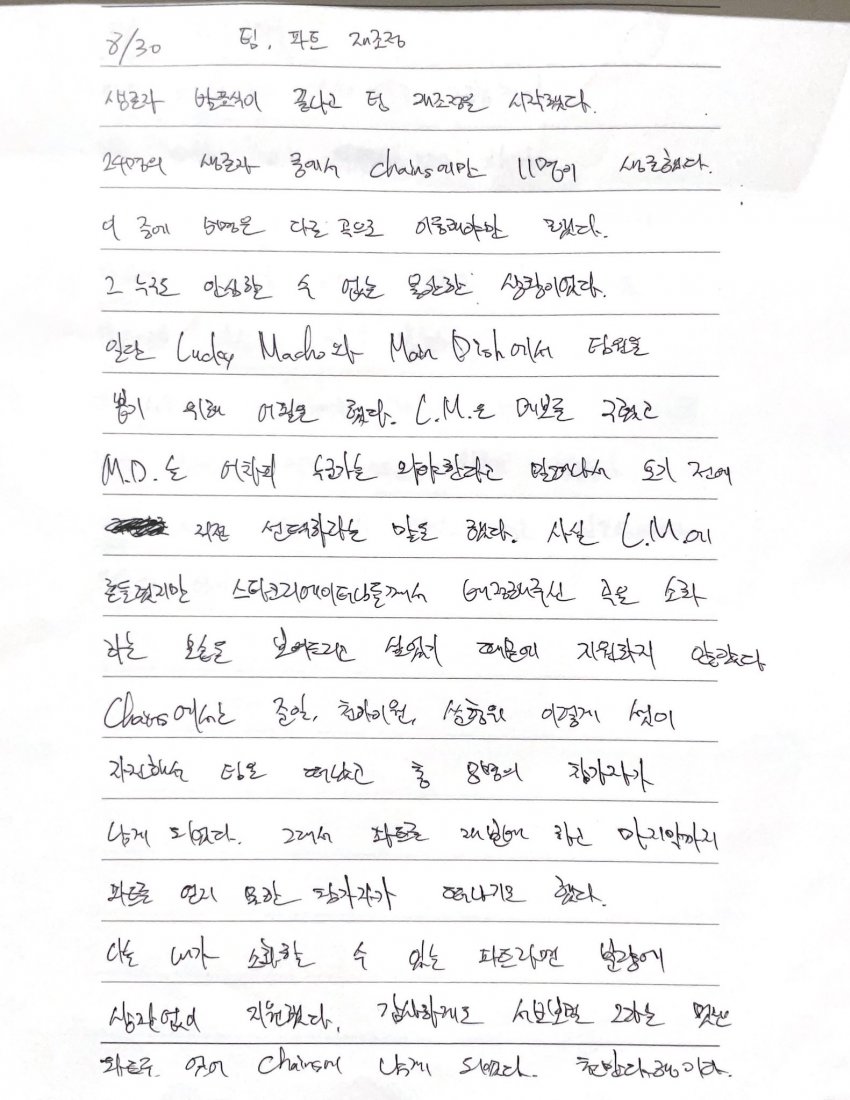 8/30 팀, 파트 재조정
생존자 발표식이 끝나고 팀 재조정을 시작했다.
24명의 생존자 중에서 Chains에만 11명이 생존했다.
이 중에 6명은 다른 곡으로 이동해야만 했다.
그 누구도 안심할 수 없는 불안한 상황이었다.
일단 Lucky Macho와 Man Dish에서 팀원을
뽑기 위해 어필을 했다. L.M.은 메보를 구했고
M.D.는 어차피 누군가는 와야한다고 말하면서 오기 전에
직접 선택하라는 말을 했다. 사실 L.M.에
흔들렸지만 스타크리에이터님들께서 배정해주신 곡을 소화
하는 모습을 보여드리고 싶었기 때문에 지원하지 않았다
Chains에서는 준일, 이렇게 셋이
자진해서 팀을 떠났고 총 8명의 참가자가
남게 되었다. 그래서 파트를 재분배 하고 마지막까지
파트를 얻지 못한 참가자가 떠나기로 했다.
나는 내가 소화할 수 있는 파트라면 분량에
상관없이 지원했다. 감사하게도 서브보컬 2라는 멋진
파트로 얻어 Chains에 남게 되었다. 천만다행이다.